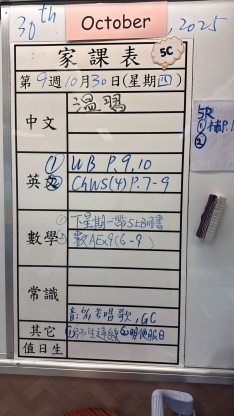 30th October, 2025
家課表 5C
第9週10月30日(星期四)
中文 溫習
英文 ① WB P.9,10
② ChWS(4) P.7-9
數學 ① 下星期一帶5上B書
② 數AEx9(6-9)
常識
音:考唱歌, GC
其它 ②明便服日
值日生
①補P.
②